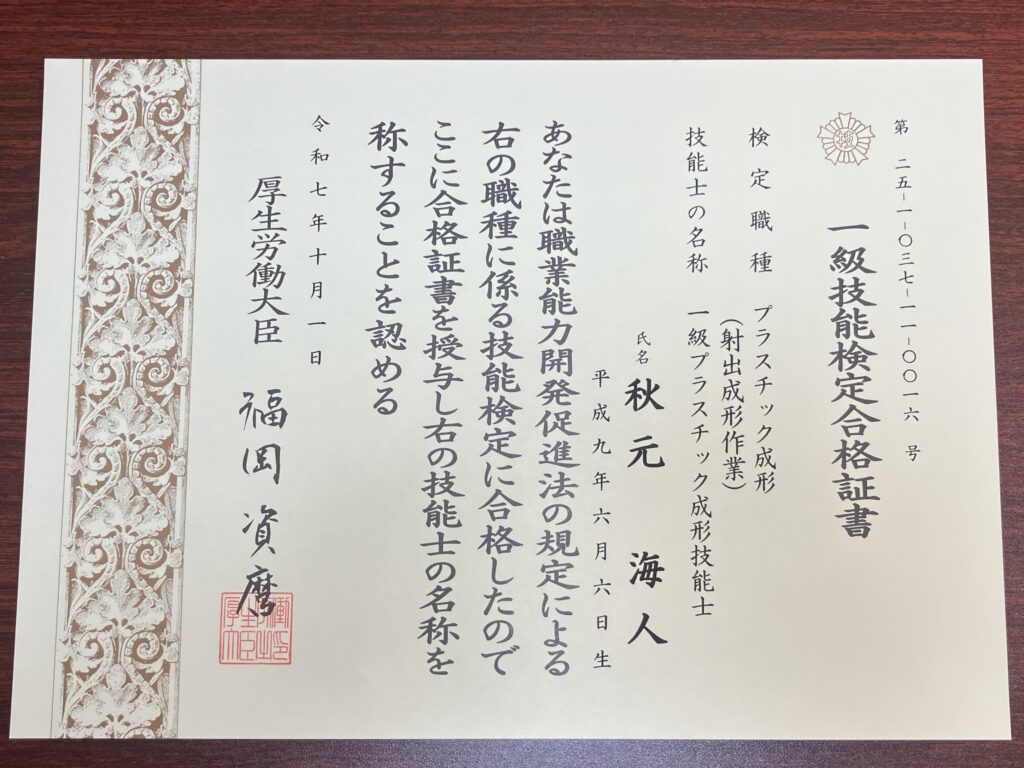 第 二五-一-〇三七-一一-〇〇一六 号
一級技能検定合格証書
検定職種 プラスチック成形
(射出成形作業)
技能士の名称 一級プラスチック成形技能士
氏名 秋元 海人
平成九年六月六日生
あなたは職業能力開発促進法の規定による
右の職種に係る技能検定に合格したので
ここに合格証書を授与し右の技能士の名称を
称することを認める
令和七年十月一日
厚生労働大臣 福岡資麿